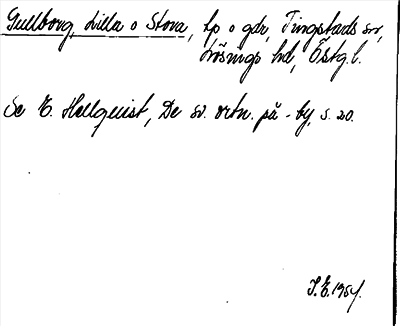 Gullborg, Lilla o Stora, lp o gdr, Tingstads sn,
Lösings hd, Östg.l.
Se E. Hellquist, De sv. ortn. på -by, s. 20.
I.E. 1954.